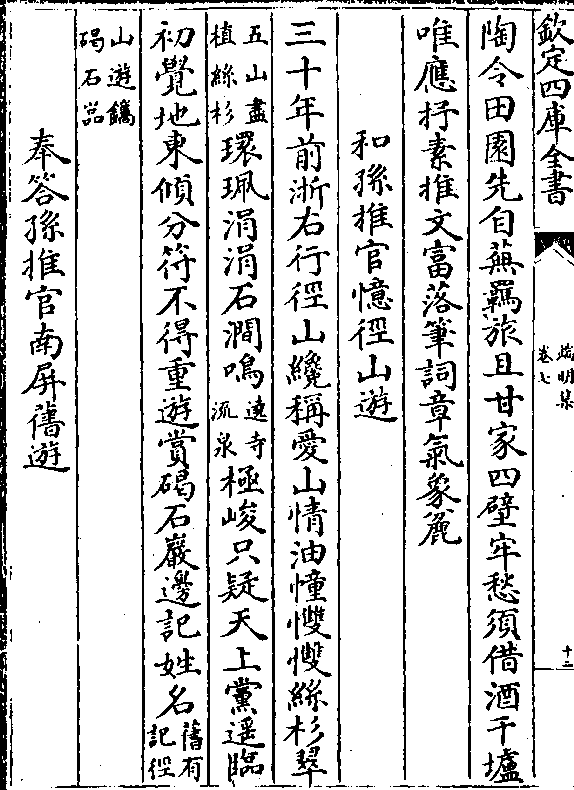 欽定四庫全書
端明集
卷七
十二
陶令田園先自蕪羈旅且甘家四壁牢愁須借酒千壚
唯應抒素推文富落筆詞章氣象麄
和孫推官憶徑山遊
三十年前浙右行徑山纔稱愛山情油憧㦼㦼絲杉翠
五山盡
植絲杉
環珮涓涓石澗鳴
遶寺
流泉
極峻只疑天上黨遥臨
初覺地東傾分符不得重遊賞碣石巖邊記姓名
舊有
記徑
山遊鐫
碣石嵓
奉答孫推官南屏舊遊